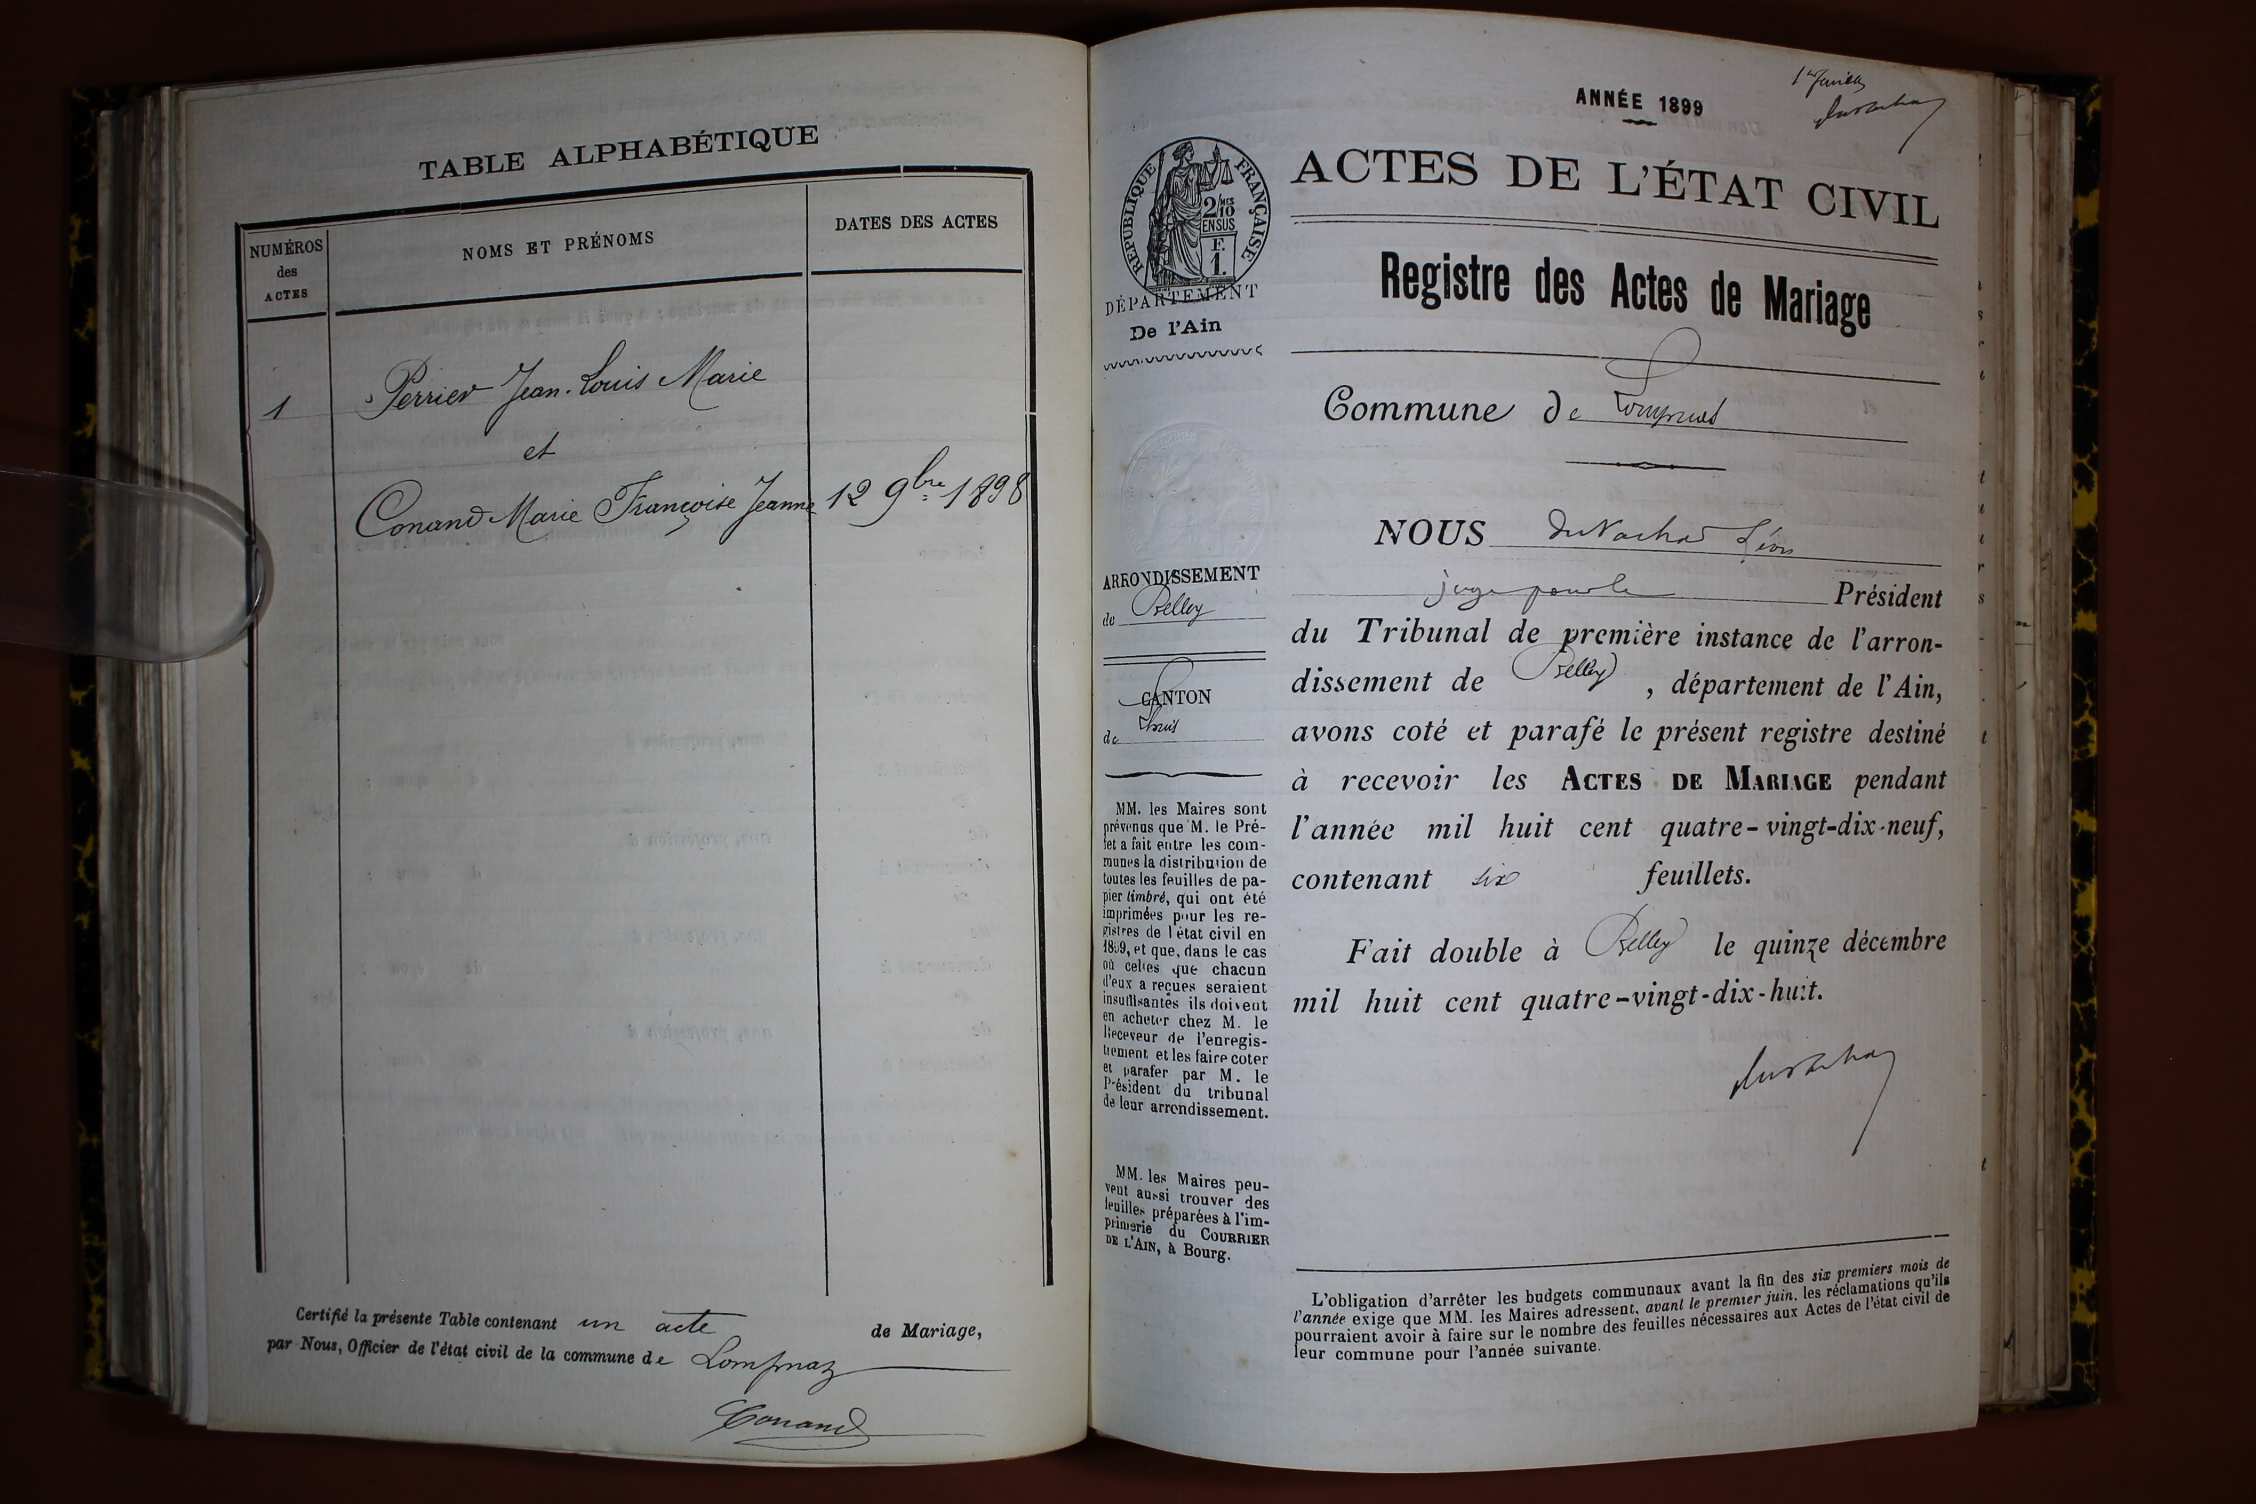 TABLE ALPHABÉTIQUE
NUMÉROS
des
ACTES
NOMS ET PRÉNOMS
DATES DES ACTES
1
Perrier Jean-Louis Marie
et
Conand Marie Françoise Jeanne 12 9bre 1898
Certifié la présente Table contenant un acte de Mariage,
par Nous, Officier de l'état civil de la commune de Lompnaz
Conand
ANNÉE 1899
ACTES DE L'ÉTAT CIVIL
RÉPUBLIQUE FRANÇAISE
2/10 MES
EN SUS
F.
1.
DÉPARTEMENT
De l'Ain
Registre des Actes de Mariage
Commune de
ARRONDISSEMENT
de Belley
CANTON
de Lhuis
MM. les Maires sont
prévenus que M. le Pré-
fet a fait entre les com-
munes la distribution de
toutes les feuilles de pa-
pier timbré, qui ont été
imprimées pour les re-
gistres de l'état civil en
1899, et que, dans le cas
où celles que chacun
d'eux a reçues seraient
insuffisantes ils doivent
en acheter chez M. le
Receveur de l'enregis-
trement et les faire coter
et parafer par M. le
Président du tribunal
de leur arrondissement.
MM. les Maires peu-
vent aussi trouver des
feuilles préparées à l'im-
primerie du COURRIER
DE L'AIN, à Bourg.
NOUS Léon
juge pour le Président
du Tribunal de première instance de l'arron-
dissement de Belley, département de l'Ain,
avons coté et parafé le présent registre destiné
à recevoir les ACTES DE MARIAGE pendant
l'année mil huit cent quatre-vingt-dix-neuf,
contenant six feuillets.
Fait double à Belley le quinze décembre
mil huit cent quatre-vingt-dix-huit.
L'obligation d'arrêter les budgets communaux avant la fin des six premiers mois de
l'année exige que MM. les Maires adressent, avant le premier juin, les réclamations qu'ils
pourraient avoir à faire sur le nombre des feuilles nécessaires aux Actes de l'état civil de
leur commune pour l'année suivante.